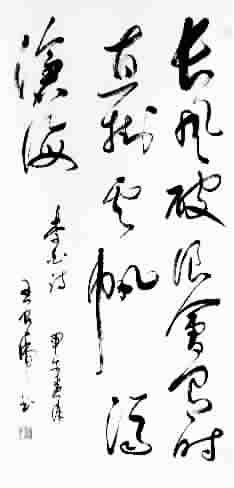 长风破浪會有时
直挂云帆济
滄海
李白诗 甲午
王 书